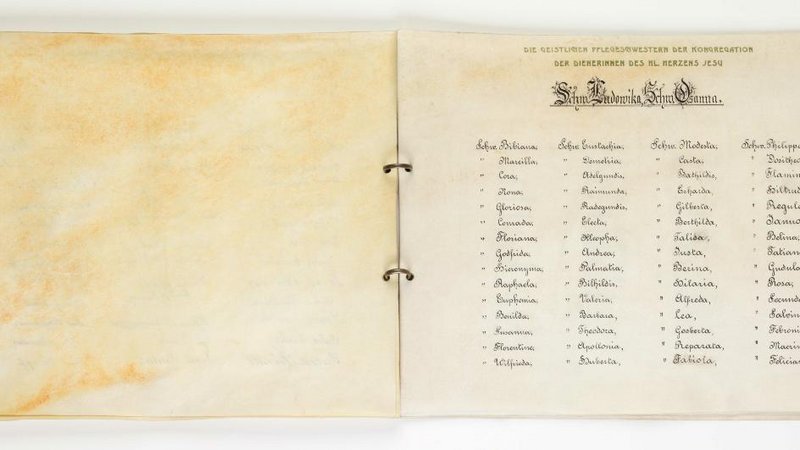 DIE GEISTLICHEN PFLEGESCHWESTERN DER KONGREGATION
DER DIENERINNEN DES HL. HERZENS JESU
Schw. Ludowika, Schw. Osanna.
Schw. Bibiana, Schw. Eustachia, Schw. Modesta, Schw. Philippa
" Marcilla, " Demetria, " Casta, " Dosithe
" Cora, " Adelgundis, " Bathildis, " Flamin
" Nona, " Raimunda, " Erharda, " Hiltrud
" Gloriosa, " Radegundis, " Gilberta, " Regul
" Conrada, " Electa, " Berthilda, "
" Floriana, " Kleopha, " Talida, " Belina,
" Godfrida, " Andrea, " Justa, " Tatian
" Hieronyma, " Palmatia, " Berina, " Gudula
" Raphaela, " Bilhildis, " Hilaria, " Rosa,
" Euphemia, " Valeria, " Alfreda, " Secund
" Benilda, " Barbara, " Lea, " Salvin
" Susanna, " Theodora, " Gosberta " Febroni
" Florentine, " Apollonia, " Reparata, " Macrin
" Wilfrieda, " Huberta, " Fabiola, " Felicias